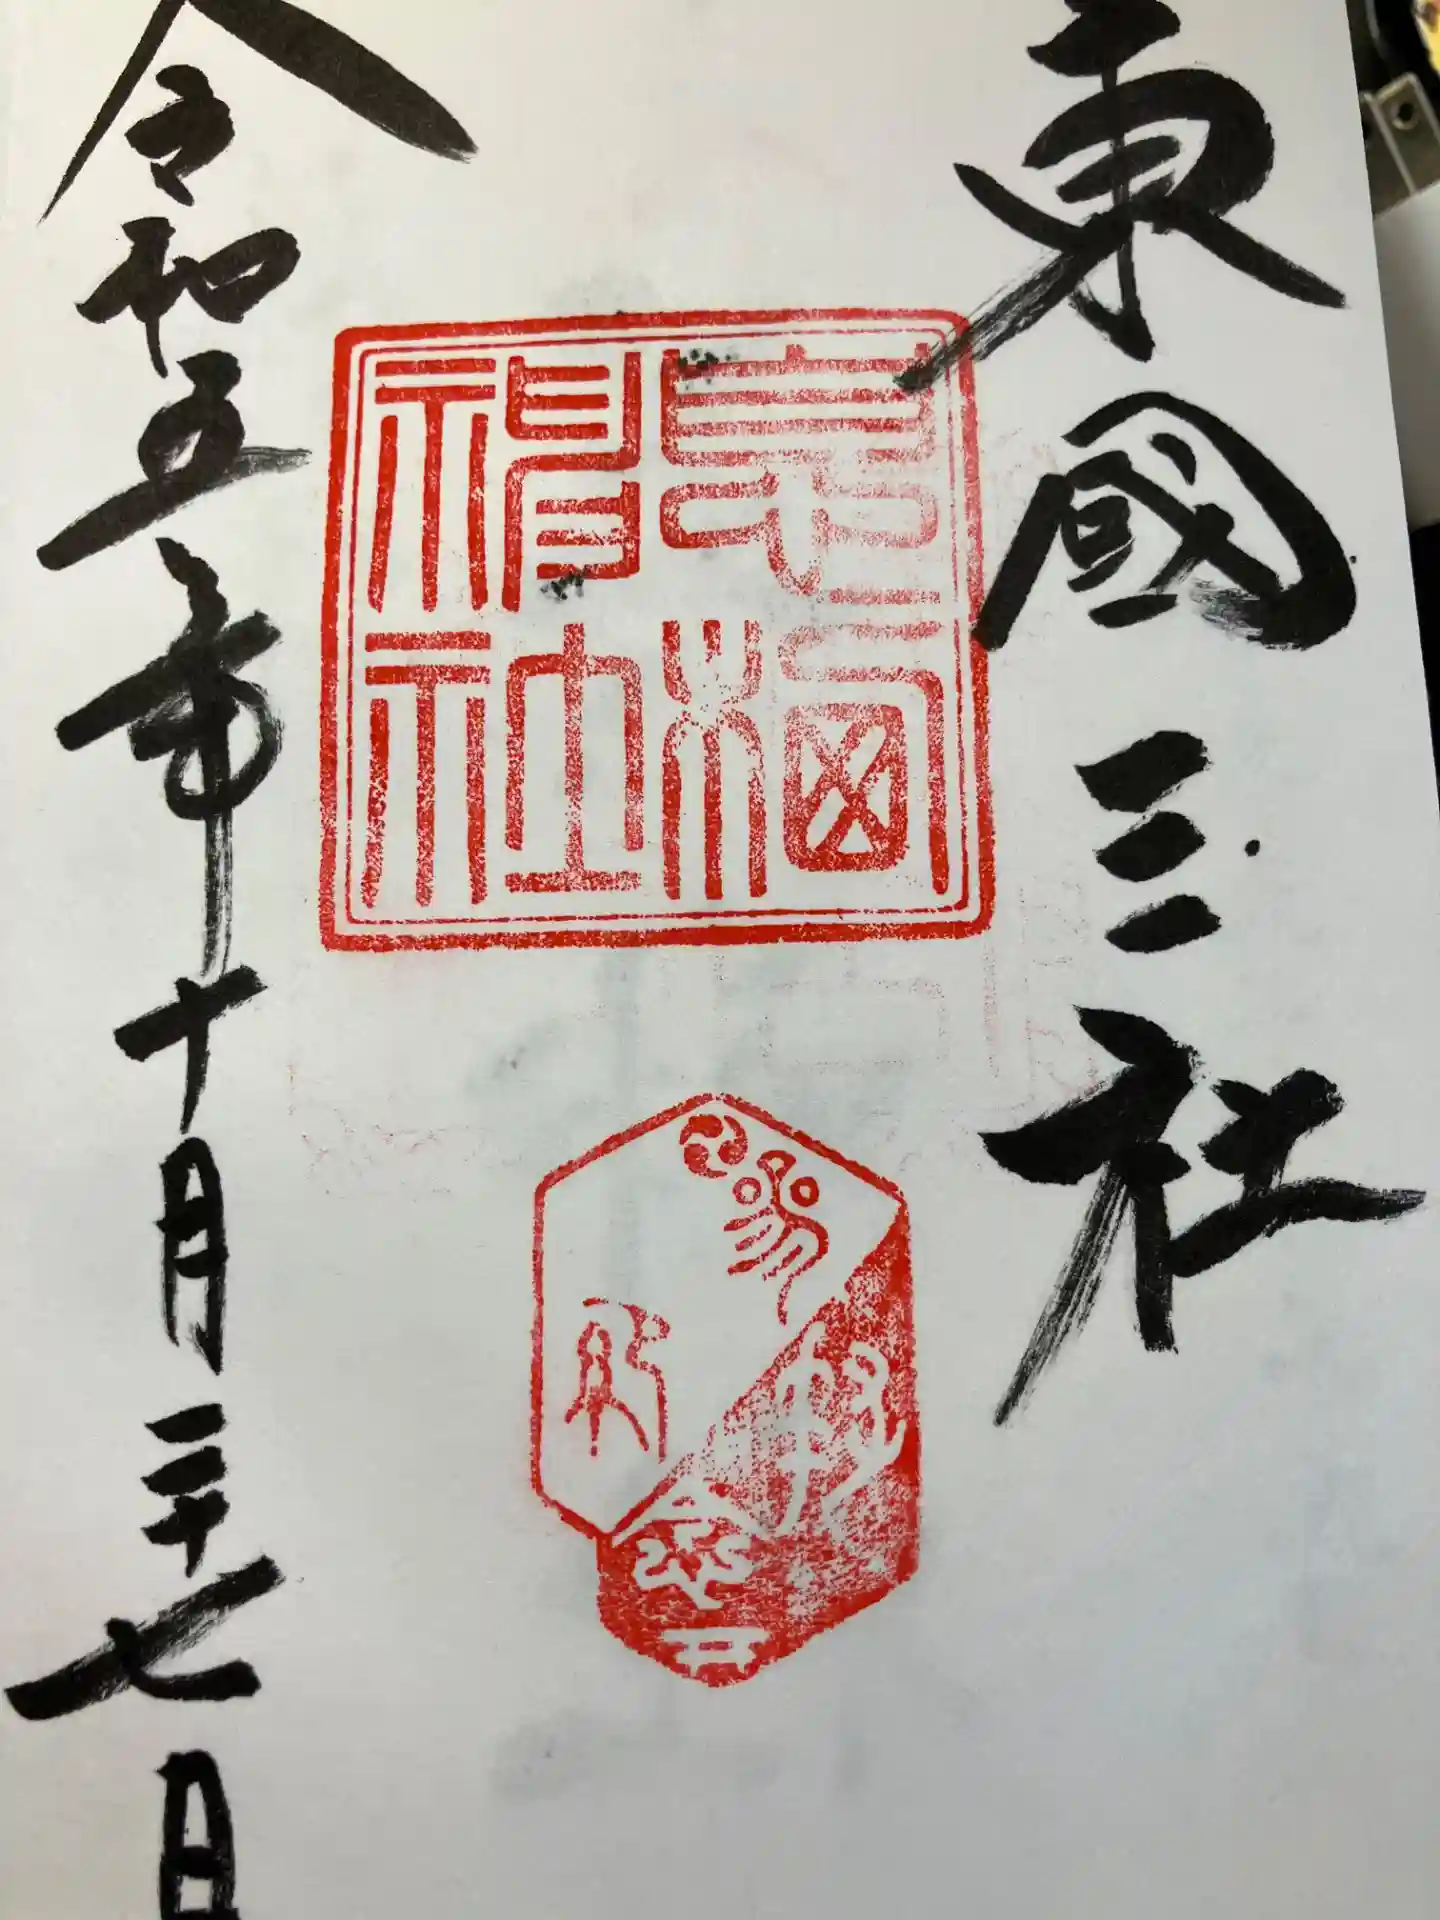 東國三社
息栖神社
令和五年十月二十七日